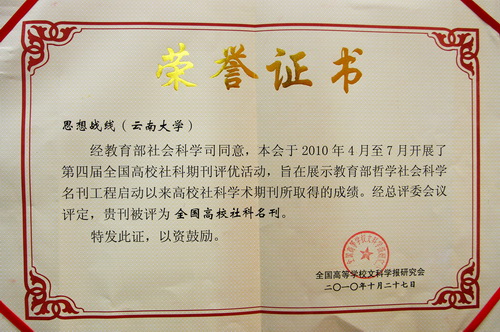 荣誉证书
思想战线（云南大学）
经教育部社会科学司同意，本会于2010年4月至7月开展了
第四届全国高校社科期刊评优活动，旨在展示教育部哲学社会科学
名刊工程启动以来高校社科学术期刊所取得的成绩。经总评委会议
评定，贵刊被评为 全国高校社科名刊。
特发此证，以资鼓励。
全国高等学校文科学报研究会
二〇一〇年十月二十七日